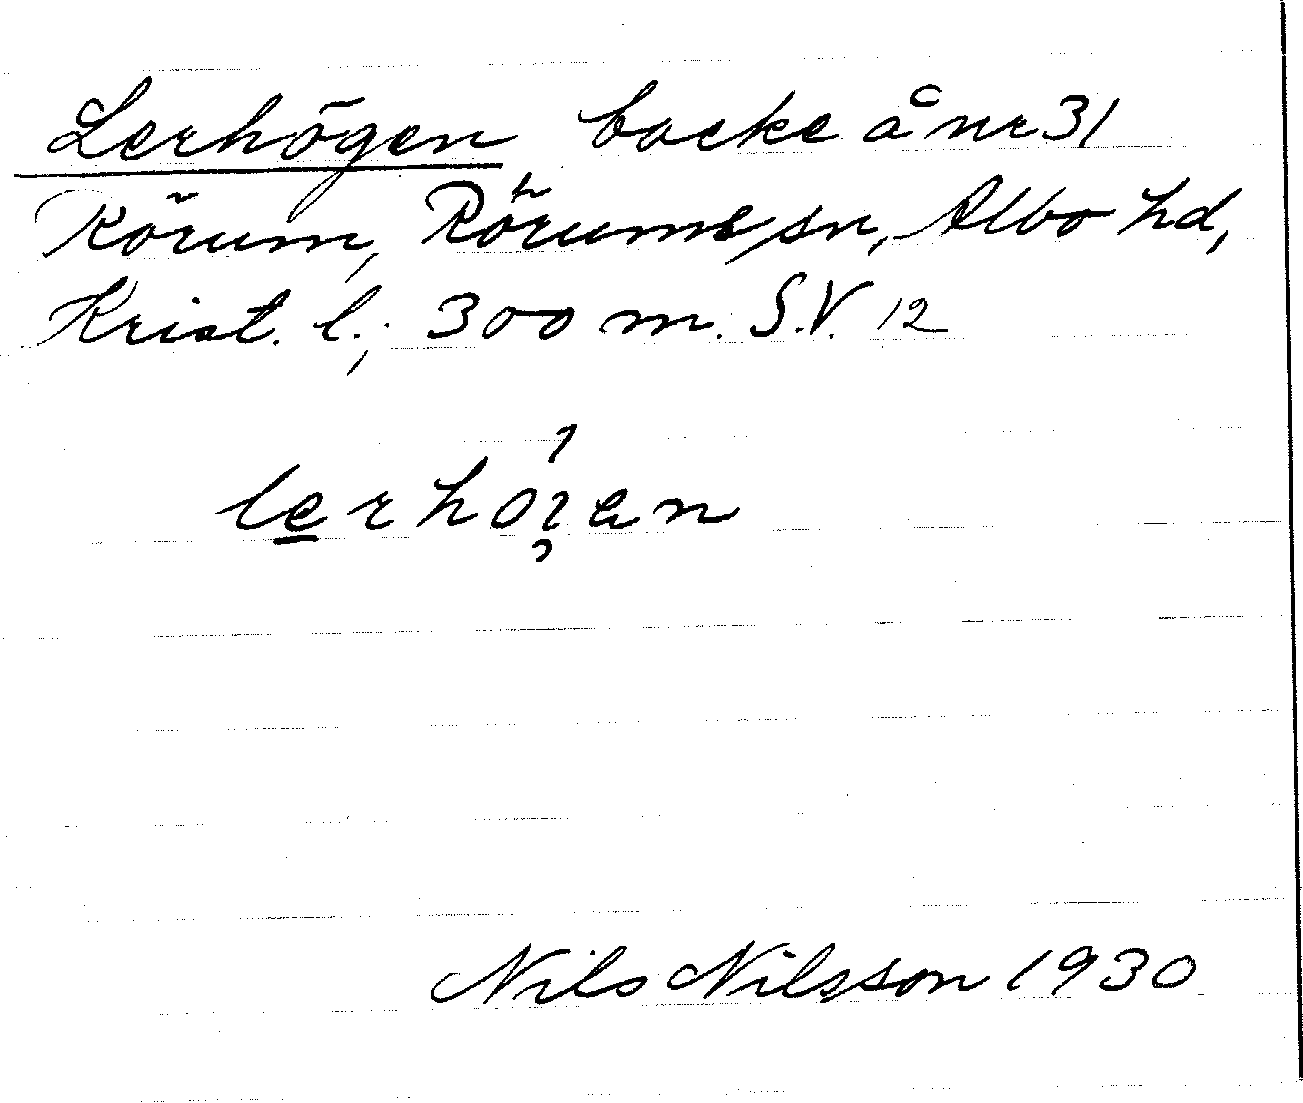 Lerhögen backe å nr 31
Rörum, Rörums sn, Albo hd,
Krist. l.; 300 m. S.V. 12
Nils Nilsson 1930